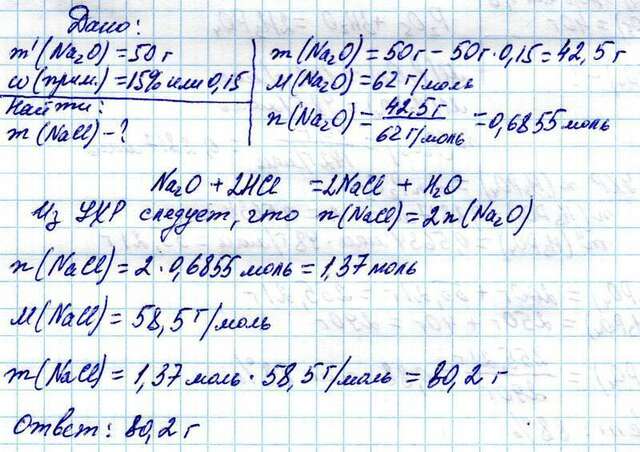 Дано:
m'(Na₂O) = 50 г
ω(прим.) = 15% или 0,15
Найти:
m(NaCl) - ?
m(Na₂O) = 50г - 50г · 0,15 = 42,5 г
M(Na₂O) = 62 г/моль
n(Na₂O) = 42,5г / 62 г/моль = 0,6855 моль
Na₂O + 2HCl = 2NaCl + H₂O
Из УХР следует, что n(NaCl) = 2n(Na₂O)
n(NaCl) = 2 · 0,6855 моль = 1,37 моль
M(NaCl) = 58,5 г/моль
m(NaCl) = 1,37 моль · 58,5 г/моль = 80,2 г
Ответ: 80,2 г